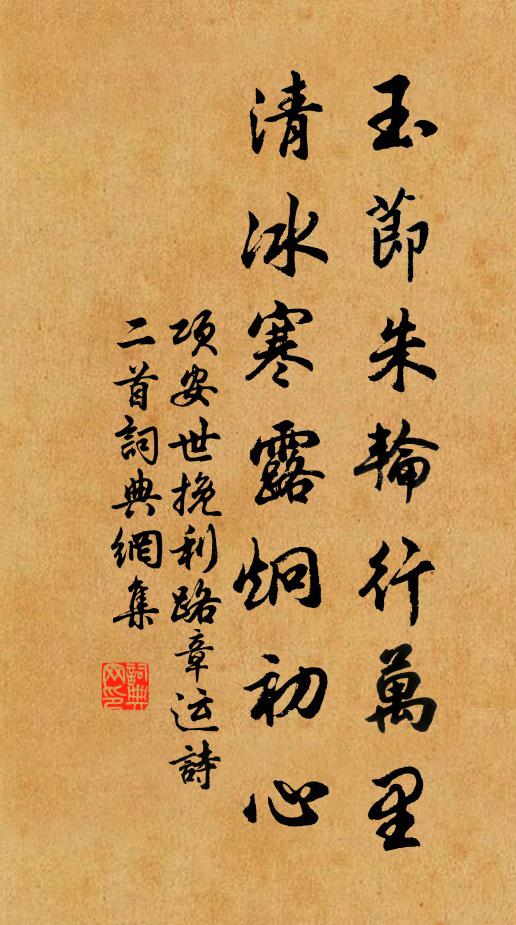 玉節朱輪行萬里
清冰寒露炯初心
項安世挽利路章运詩
二首詞典網集
詞典网印